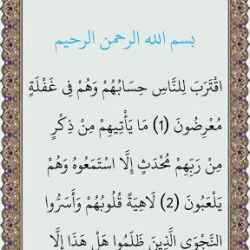 بسم الله الرحمن الرحيم
اقْتَرَبَ لِلنَّاسِ حِسَابُهُمْ وَهُمْ فِي غَفْلَةٍ
مُعْرِضُونَ (1) مَا يَأْتِيهِمْ مِنْ ذِكْرٍ
مِنْ رَبِّهِمْ مُحْدَثٍ إِلَّا اسْتَمَعُوهُ وَهُمْ
يَلْعَبُونَ (2) لَاهِيَةً قُلُوبُهُمْ وَأَسَرُّوا
النَّجْوَى الَّذِينَ ظَلَمُوا هَلْ هَذَا إِلَّا